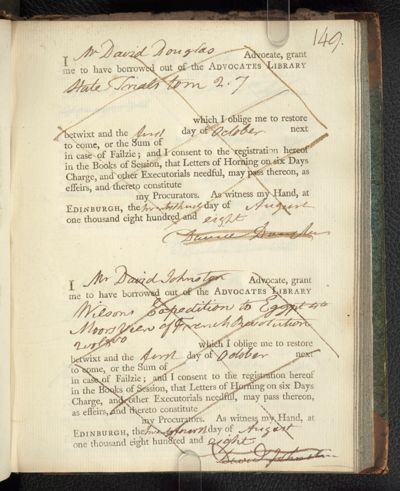 149.
I Mr David Douglas Advocate, grant
me to have borrowed out of the ADVOCATES LIBRARY
State Trials tom 2. 7
which I oblige me to restore
betwixt and the first day of October next
to come, or the Sum of
in case of Failzie; and I consent to the registration hereof
in the Books of Session, that Letters of Horning on six Days
Charge, and other Executorials needful, may pass thereon, as
effeirs, and thereto constitute
my Procurators. As witness my Hand, at
EDINBURGH, the day of August
one thousand eight hundred and eight
David Douglas
I Mr David Johnston Advocate, grant
me to have borrowed out of the ADVOCATES LIBRARY
Wilsons Expedition to Egypt 4to
Moors View of French Revolution
2 vol 8vo
which I oblige me to restore
betwixt and the first day of October next
to come, or the Sum of
in case of Failzie; and I consent to the registration hereof
in the Books of Session, that Letters of Horning on six Days
Charge, and other Executorials needful, may pass thereon,
as effeirs, and thereto constitute
my Procurators. As witness my Hand, at
EDINBURGH, the day of August
one thousand eight hundred and eight
David Johnston